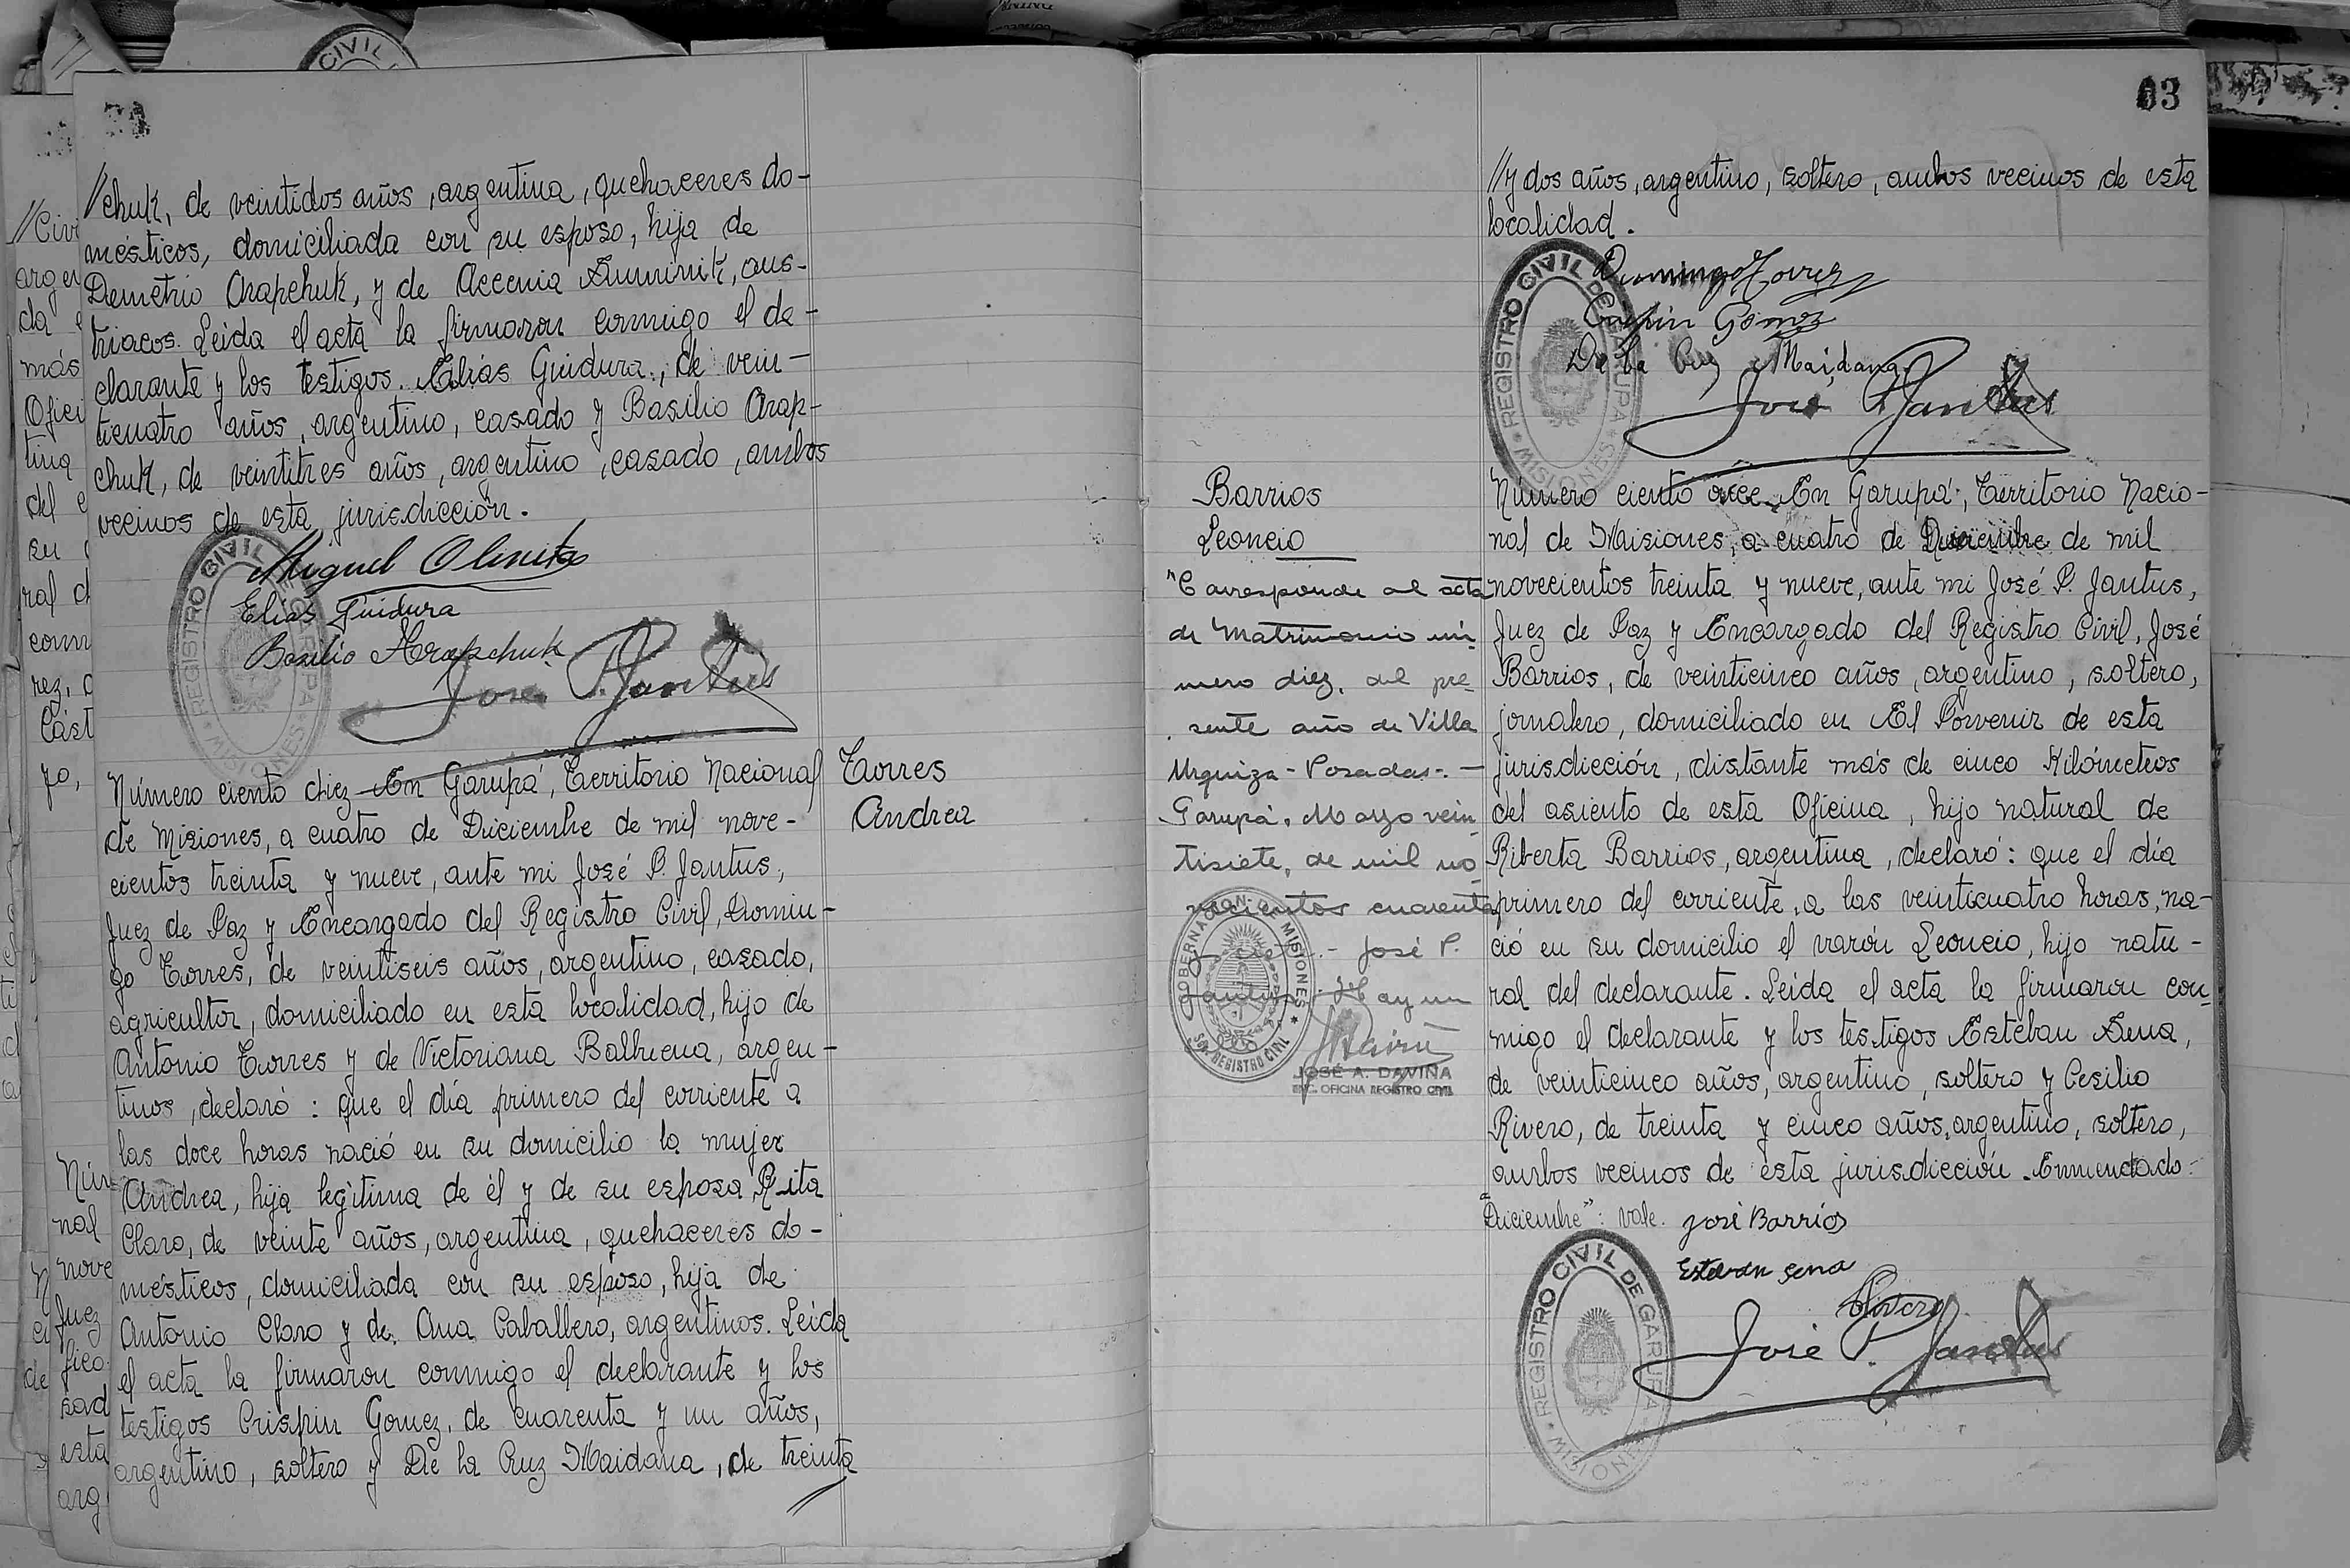 //chuk, de veintidos años, argentina, quehaceres do-
mésticos, domiciliada con su esposo, hija de
Demetrio Arapchuk, y de Accenia Duminik, aus-
triacos. Leida el acta la firmaron conmigo el de-
clarante y los testigos. Elias Guidura, de vein-
ticuatro años, argentino, casado y Basilio Arap-
chuk, de veintitres años, argentino, casado, ambos
vecinos de esta jurisdicción.
Miguel Olenita
Elias Guidura
Basilio Arapchuk
José P. Jantus
REGISTRO CIVIL DE GARUPA
* MISIONES *
Número ciento diez En Garupá, Territorio Nacional
de Misiones, a cuatro de Diciembre de mil nove-
cientos treinta y nueve, ante mi José P. Jantus,
Juez de Paz y Encargado del Registro Civil, Domin-
go Torres, de veintiseis años, argentino, casado,
agricultor, domiciliado en esta localidad, hijo de
Antonio Torres y de Victoriana Balbuena, argen-
tinos, declaró: que el día primero del corriente a
las doce horas nació en su domicilio la mujer
Andrea, hija legitima de él y de su esposa Rita
Claro, de veinte años, argentina, quehaceres do-
mésticos, domiciliada con su esposo, hija de
Antonio Claro y de Ana Caballero, argentinos. Leida
el acta la firmaron conmigo el declarante y los
testigos Crispin Gomez, de cuarenta y un años,
argentino, soltero y De la Cruz Maidana, de treinta
//
Torres
Andrea
03
//y dos años, argentino, soltero, ambos vecinos de esta
localidad.
Domingo Torres
Crispin Gómez
De la Cruz Maidana
José P. Jantus
REGISTRO CIVIL DE GARUPA
* MISIONES *
Barrios
Leoncio
"Corresponde al acta
de Matrimonio nú-
mero diez, del pre-
sente año de Villa
Urquiza - Posadas-. -
Garupá, Marzo vein
tisiete, de mil no
vecientos cuarenta
José P.
Jantus. Hay un
GOBERNACION MISIONES
SON. REGISTRO CIVIL
JOSÉ A. DAVIÑA
ENC. OFICINA REGISTRO CIVIL
Número ciento once. En Garupá, Territorio Nacio-
nal de Misiones, a cuatro de Diciembre de mil
novecientos treinta y nueve, ante mi José P. Jantus,
Juez de Paz y Encargado del Registro Civil, José
Barrios, de veinticinco años, argentino, soltero,
jornalero, domiciliado en El Porvenir de esta
jurisdicción, distante más de cinco Kilómetros
del asiento de esta Oficina, hijo natural de
Riberta Barrios, argentina, declaró: que el día
primero del corriente, a las veinticuatro horas, na-
ció en su domicilio el varón Leoncio, hijo natu-
ral del declarante. Leida el acta la firmaron con-
migo el declarante y los testigos Esteban Sena,
de veinticinco años, argentino, soltero y Cesilio
Rivero, de treinta y cinco años, argentino, soltero,
ambos vecinos de esta jurisdicción. Enmendado:
"Diciembre": vale.
José Barrios
Esteban Sena
José P. Jantus
REGISTRO CIVIL DE GARUPA
* MISIONES *